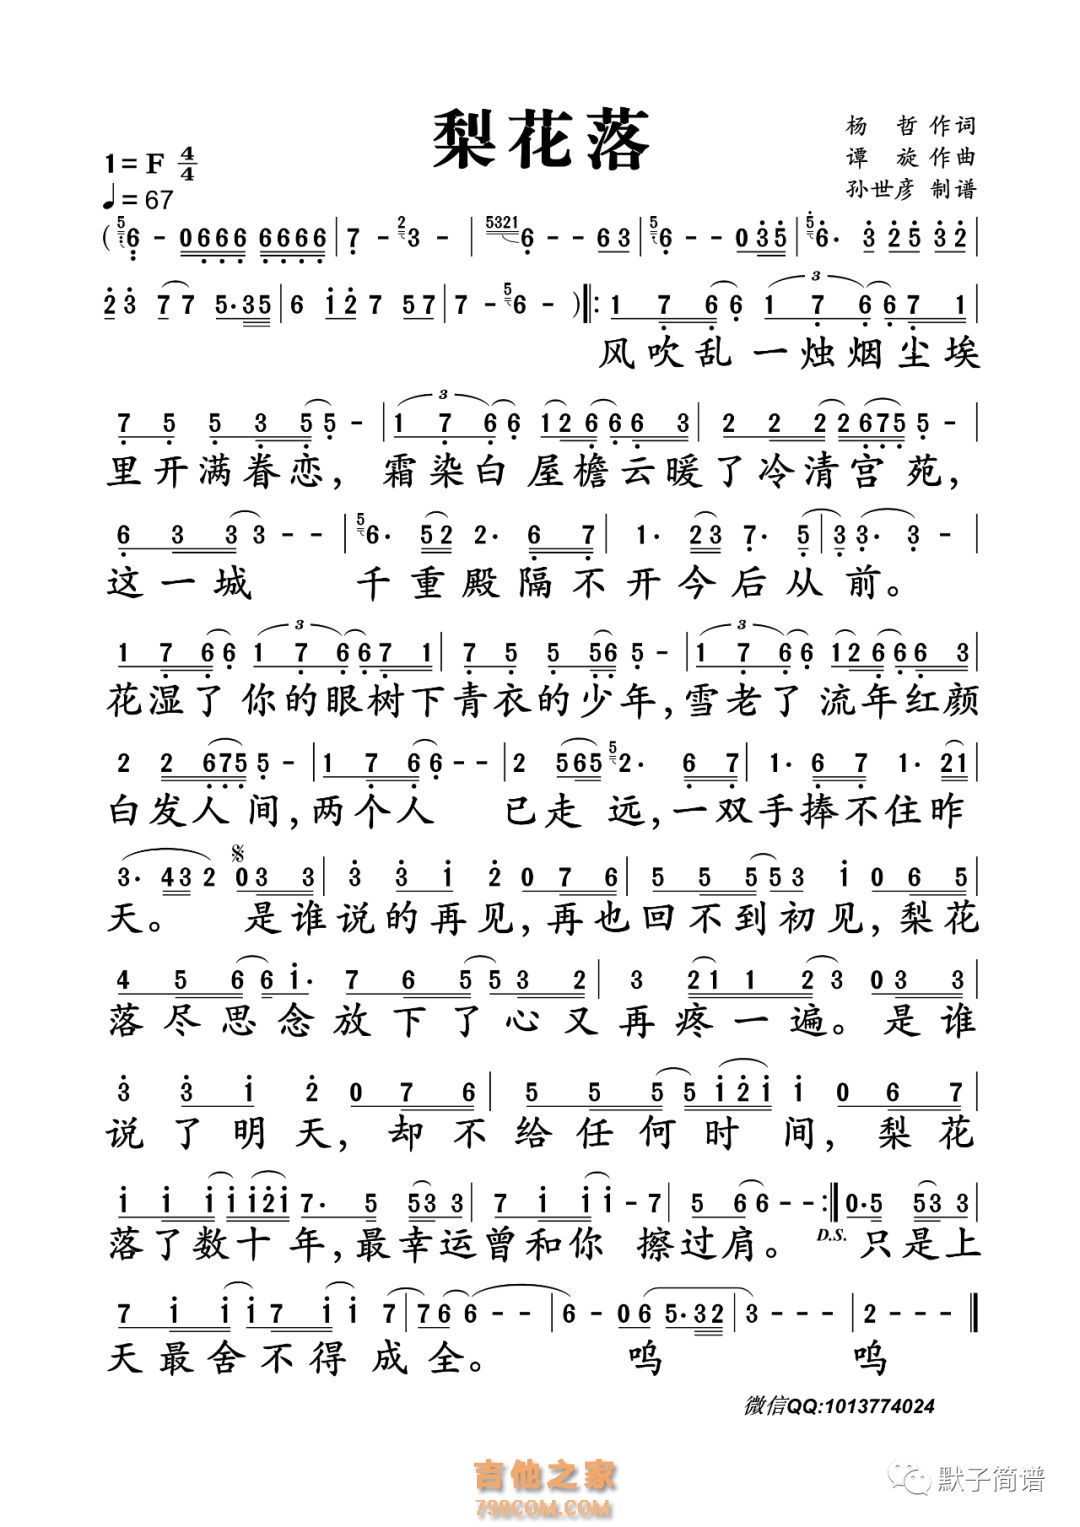 梨花落
杨 哲 作词
1= F 4/4
谭 旋 作曲
♩= 67
孙世彦 制谱
(5 6 - 0666 6666 | 7 - 2 3 - | 5321 6 - - 63 | 5 6 - - 035 | 5 6· 3 25 32 |
23 77 5·35 | 6 12 7 57 | 7 - 5 6 - )‖: 1 7 6 6 1 7 6 6 7 1 |
风吹乱 一烛烟尘埃
7 5 5 3 5 5 - | 1 7 6 6 12 6 6 6 3 | 2 2 2 2675 5 - |
里开满眷恋, 霜染白 屋檐云暖了冷清宫 苑,
6 3 3 3 - - | 5 6· 52 2· 6 7 | 1· 23 7· 5 | 3 3· 3 - |
这一城 千重殿隔不开今后从前。
1 7 6 6 1 7 6 6 7 1 | 7 5 5 56 5 - | 1 7 6 6 12 6 6 6 3 |
花湿了 你的眼树下青衣的少年,雪老了 流年红颜
2 2 675 5 - | 1 7 6 6 - - | 2 565 5 2· 6 7 | 1· 6 7 1· 21 |
白发人 间,两个人 已走远,一双手捧不住昨
3· 43 2 0 3 3 | 3 3 1 2 0 7 6 | 5 5 5 5 3 1 0 6 5 |
天。 是谁说的再见,再也回不到初见,梨花
4 5 6 6 1· 7 6 5 5 3 2 | 3 21 1 2 3 0 3 3 |
落尽思念放下了心又再疼一遍。是谁
3 3 1 2 0 7 6 | 5 5 5 5 121 1 0 6 7 |
说了明天,却不给任何时间,梨花
1 1 1 1 121 7· 5 53 3 | 7 1 1 1 - 7 | 5 6 6 - - :‖ 0·5 53 3 |
落了数十年,最幸运曾和你 擦过肩。 D.S. 只是上
7 1 1 1 7 1 1 7 | 7 6 6 - - | 6 - 0 6 5·32 | 3 - - - | 2 - - - ‖
天最舍不得成全。 呜 呜
微信QQ:1013774024
吉他之家
798COM.COM
默子简谱